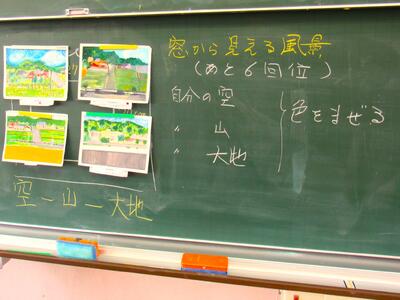 窓から見える風景
(あと6回位)
自分の空
〃 山
〃 大地
色をまぜる
空-山-大地